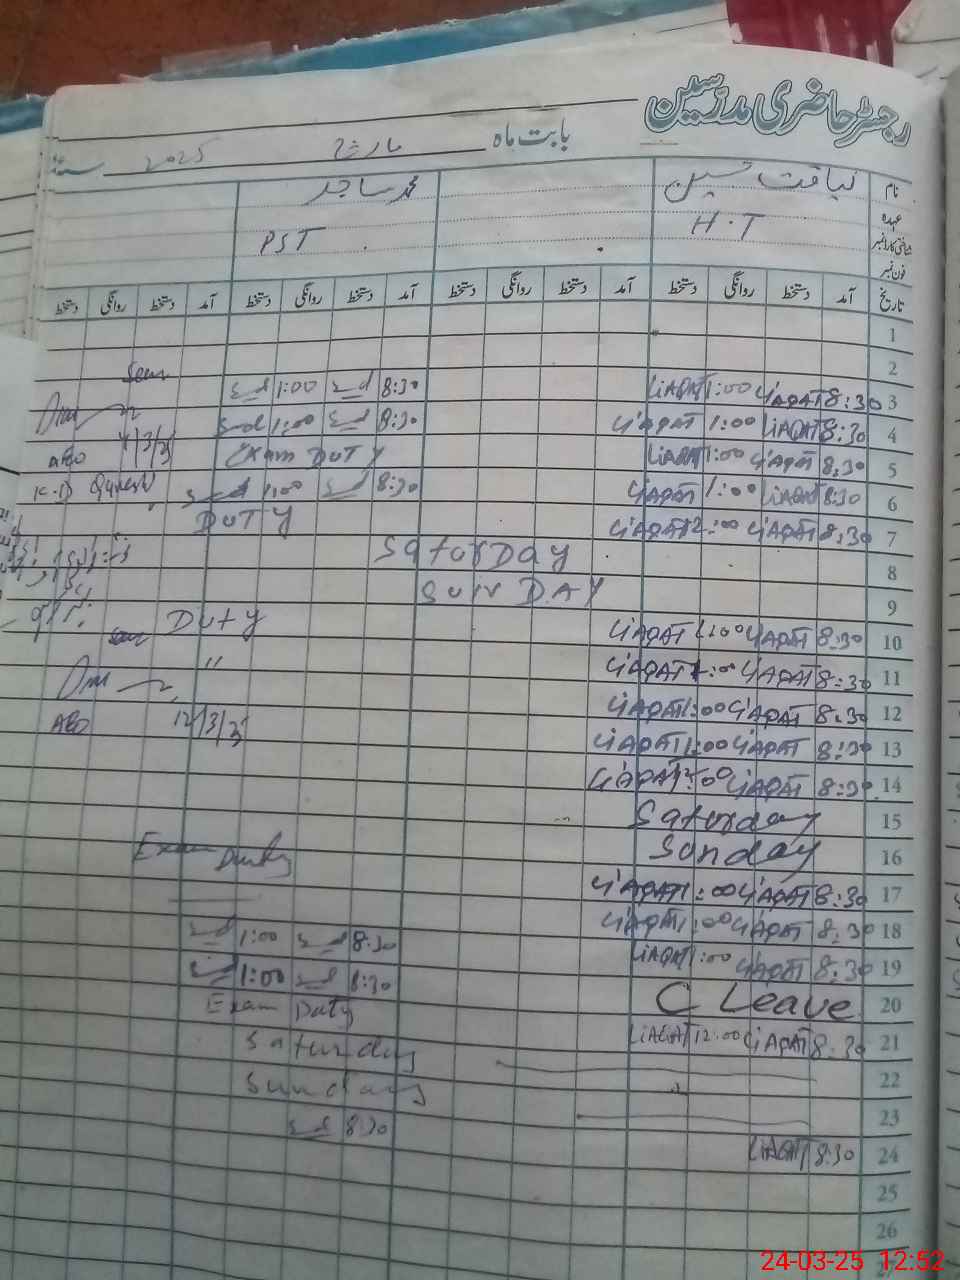 رجسٹر حاضری مدرسین
بابت ماہ مارچ 2025
نام لیاقت حسین محمد ساجد
عہدہ H.T PST
شناختی کارڈ نمبر
فون نمبر
تاریخ آمد دستخط روانگی دستخط آمد دستخط روانگی دستخط آمد دستخط روانگی دستخط آمد دستخط روانگی دستخط
1
2
3 8:30 LiAQAT 1:00 LiAQAT 8:30 1:00
4 8:30 LiAQAT 1:00 LiAQAT 8:30 1:00
5 8:30 LiAQAT 1:00 LiAQAT Exam DUTY 4/3/25 ABO
6 8:30 LiAQAT 1:00 LiAQAT 8:30 1:00
7 8:30 LiAQAT 12:00 LiAQAT DUTY
8 Saturday
9 SUNDAY
10 8:30 LiAQAT 1:00 LiAQAT Duty
11 8:30 LiAQAT 1:00 LiAQAT "
12 8:30 LiAQAT 1:00 LiAQAT 12/3/25 ABO
13 8:30 LiAQAT 1:00 LiAQAT
14 8:30 LiAQAT 12:00 LiAQAT
15 Saturday
16 Sunday Exam Duty
17 8:30 LiAQAT 1:00 LiAQAT
18 8:30 LiAQAT 1:00 LiAQAT 8:30 1:00
19 8:30 LiAQAT 1:00 LiAQAT 8:30 1:00
20 C Leave Exam Duty
21 8:30 LiAQAT 12:00 LiAQAT Saturday
22 Sunday
23 8:30
24 8:30 LiAQAT
25
26
24-03-25 12:52